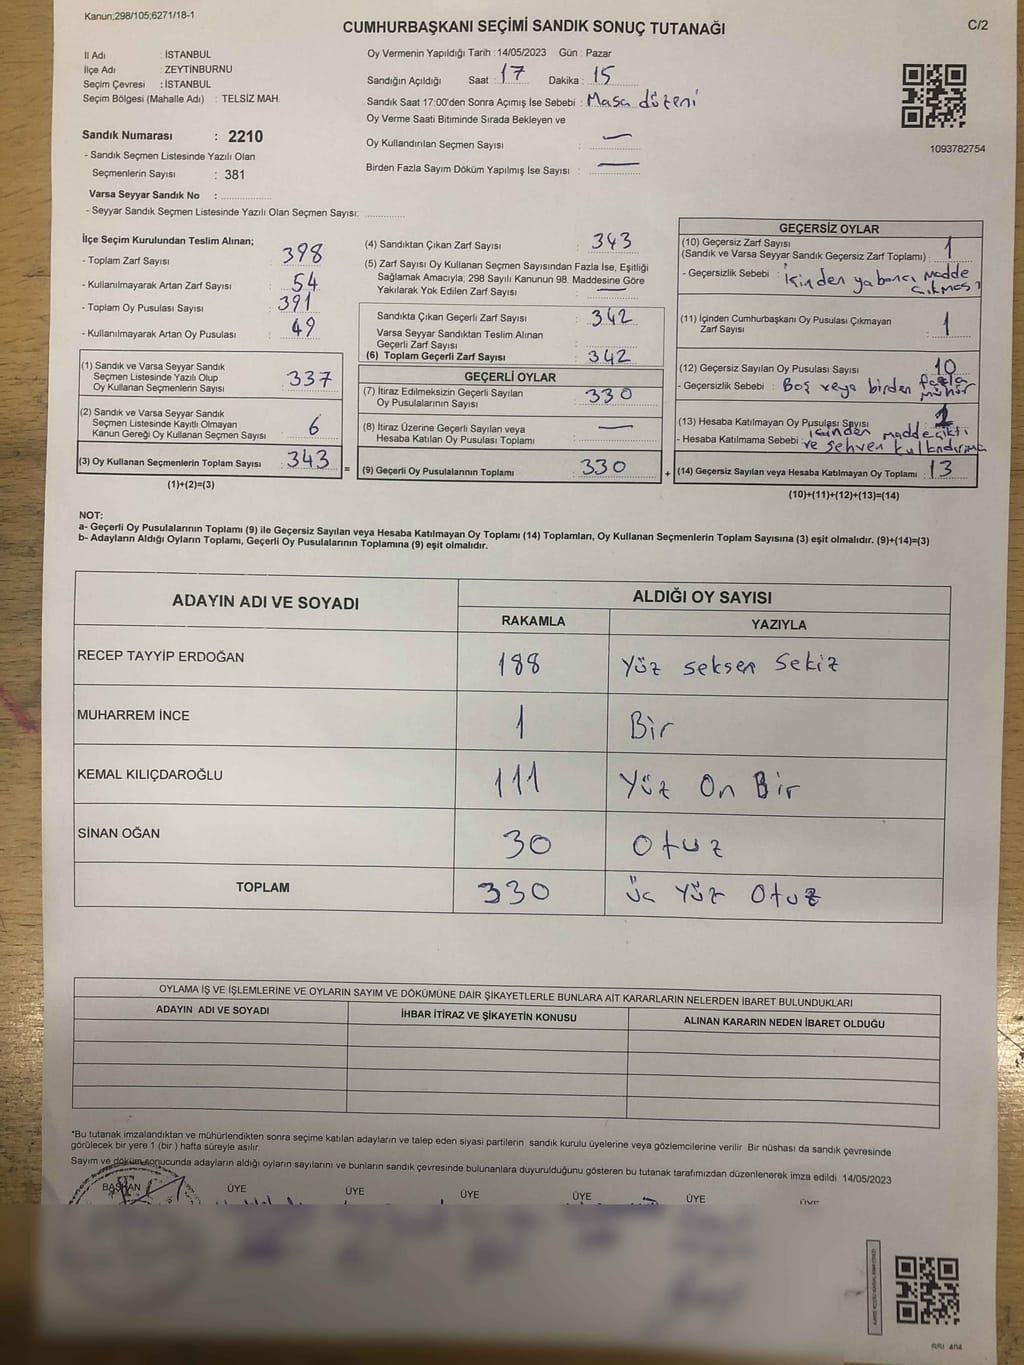 Kanun;298/105;6271/18-1
CUMHURBAŞKANI SEÇİMİ SANDIK SONUÇ TUTANAĞI
C/2
İl Adı : İSTANBUL
İlçe Adı : ZEYTİNBURNU
Seçim Çevresi : İSTANBUL
Seçim Bölgesi (Mahalle Adı) : TELSİZ MAH.
Sandık Numarası : 2210
- Sandık Seçmen Listesinde Yazılı Olan
Seçmenlerin Sayısı : 381
Varsa Seyyar Sandık No :
- Seyyar Sandık Seçmen Listesinde Yazılı Olan Seçmen Sayısı:
Oy Vermenin Yapıldığı Tarih :14/05/2023 Gün : Pazar
Sandığın Açıldığı Saat : 17 Dakika : 15
Sandık Saat 17:00'den Sonra Açımış İse Sebebi : Masa düzeni
Oy Verme Saati Bitiminde Sırada Bekleyen ve
Oy Kullandırılan Seçmen Sayısı : —
Birden Fazla Sayım Döküm Yapılmış İse Sayısı : —
1093782754
İlçe Seçim Kurulundan Teslim Alınan;
- Toplam Zarf Sayısı : 398
- Kullanılmayarak Artan Zarf Sayısı : 54
- Toplam Oy Pusulası Sayısı : 391
- Kullanılmayarak Artan Oy Pusulası : 49
(1) Sandık ve Varsa Seyyar Sandık
Seçmen Listesinde Yazılı Olup
Oy Kullanan Seçmenlerin Sayısı : 337
(2) Sandık ve Varsa Seyyar Sandık
Seçmen Listesinde Kayıtlı Olmayan
Kanun Gereği Oy Kullanan Seçmen Sayısı : 6
(3) Oy Kullanan Seçmenlerin Toplam Sayısı : 343
(1)+(2)=(3)
=
(4) Sandıktan Çıkan Zarf Sayısı : 343
(5) Zarf Sayısı Oy Kullanan Seçmen Sayısından Fazla İse, Eşitliği
Sağlamak Amacıyla, 298 Sayılı Kanunun 98. Maddesine Göre
Yakılarak Yok Edilen Zarf Sayısı : —
Sandıkta Çıkan Geçerli Zarf Sayısı : 342
Varsa Seyyar Sandıktan Teslim Alınan
Geçerli Zarf Sayısı :
(6) Toplam Geçerli Zarf Sayısı : 342
GEÇERLİ OYLAR
(7) İtiraz Edilmeksizin Geçerli Sayılan
Oy Pusulalarının Sayısı : 330
(8) İtiraz Üzerine Geçerli Sayılan veya
Hesaba Katılan Oy Pusulası Toplamı : —
(9) Geçerli Oy Pusulalarının Toplamı : 330
+
GEÇERSİZ OYLAR
(10) Geçersiz Zarf Sayısı
(Sandık ve Varsa Seyyar Sandık Geçersiz Zarf Toplamı) : 1
- Geçersizlik Sebebi : içinden yabancı madde
çıkması
(11) İçinden Cumhurbaşkanı Oy Pusulası Çıkmayan
Zarf Sayısı : 1
(12) Geçersiz Sayılan Oy Pusulası Sayısı : 10
- Geçersizlik Sebebi : Boş veya birden fazla
mühür
(13) Hesaba Katılmayan Oy Pusulası Sayısı :
- Hesaba Katılmama Sebebi : içinden madde çıktı
ve sehven kullandırma
(14) Geçersiz Sayılan veya Hesaba Katılmayan Oy Toplamı : 13
(10)+(11)+(12)+(13)=(14)
NOT:
a- Geçerli Oy Pusulalarının Toplamı (9) ile Geçersiz Sayılan veya Hesaba Katılmayan Oy Toplamı (14) Toplamları, Oy Kullanan Seçmenlerin Toplam Sayısına (3) eşit olmalıdır. (9)+(14)=(3)
b- Adayların Aldığı Oyların Toplamı, Geçerli Oy Pusulalarının Toplamına (9) eşit olmalıdır.
ADAYIN ADI VE SOYADI
ALDIĞI OY SAYISI
RAKAMLA YAZIYLA
RECEP TAYYİP ERDOĞAN 188 Yüz seksen sekiz
MUHARREM İNCE 1 Bir
KEMAL KILIÇDAROĞLU 111 Yüz On Bir
SİNAN OĞAN 30 Otuz
TOPLAM 330 Üç Yüz Otuz
OYLAMA İŞ VE İŞLEMLERİNE VE OYLARIN SAYIM VE DÖKÜMÜNE DAİR ŞİKAYETLERLE BUNLARA AİT KARARLARIN NELERDEN İBARET BULUNDUKLARI
ADAYIN ADI VE SOYADI İHBAR İTİRAZ VE ŞİKAYETİN KONUSU ALINAN KARARIN NEDEN İBARET OLDUĞU
*Bu tutanak imzalandıktan ve mühürlendikten sonra seçime katılan adayların ve talep eden siyasi partilerin sandık kurulu üyelerine veya gözlemcilerine verilir Bir nüshası da sandık çevresinde
görülecek bir yere 1 (bir ) hafta süreyle asılır.
Sayım ve döküm sonucunda adayların aldığı oyların sayılarını ve bunların sandık çevresinde bulunanlara duyurulduğunu gösteren bu tutanak tarafımızdan düzenlenerek imza edildi. 14/05/2023
BAŞKAN ÜYE ÜYE ÜYE ÜYE ÜYE ÜYE